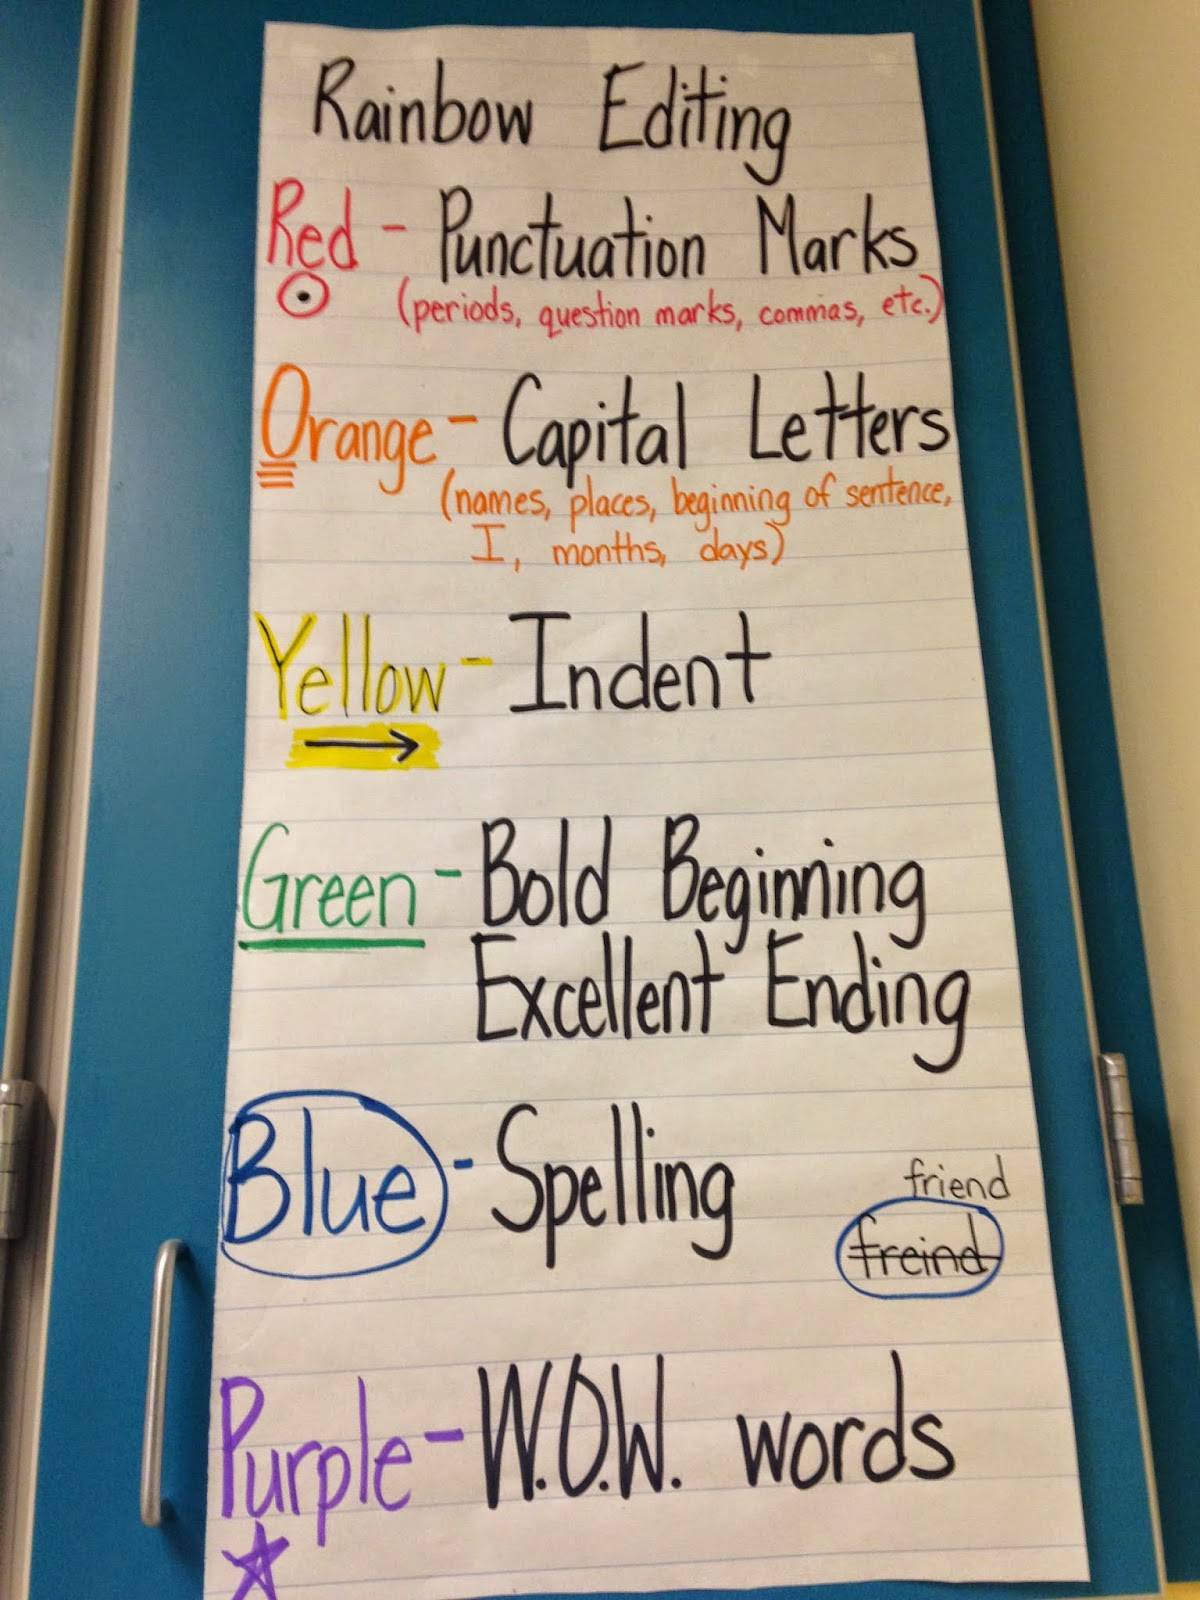 Rainbow Editing
Red - Punctuation Marks
(periods, question marks, commas, etc.)
Orange - Capital Letters
(names, places, beginning of sentence,
I, months, days)
Yellow - Indent
Green - Bold Beginning
Excellent Ending
Blue - Spelling
friend
freind
Purple - W.O.W. words